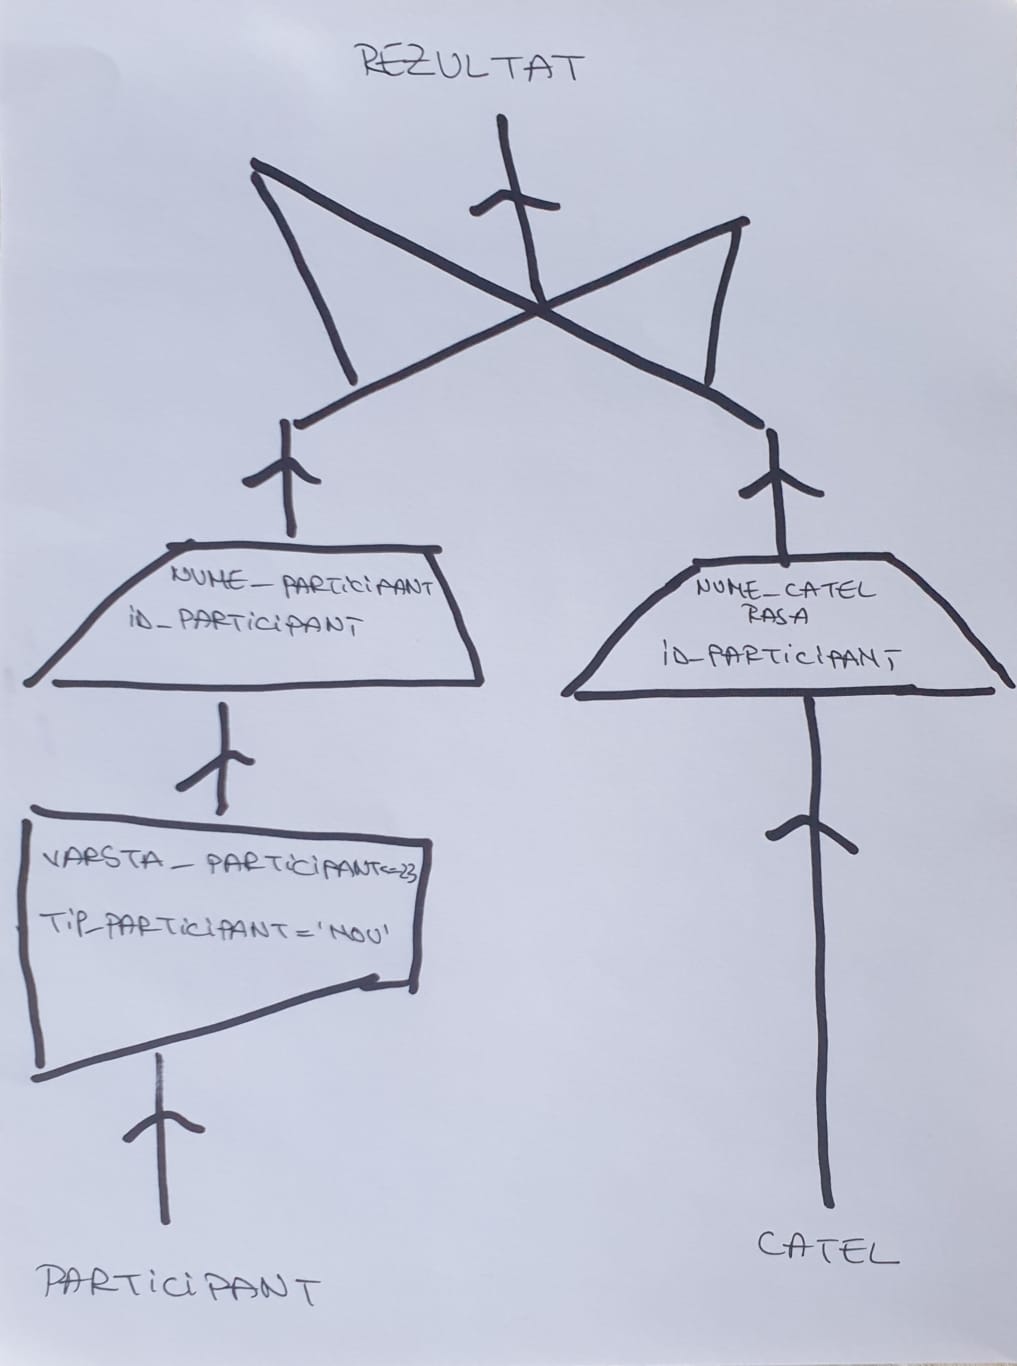 REZULTAT
NUME_PARTICIPANT
ID_PARTICIPANT
NUME_CATEL
RASA
ID_PARTICIPANT
VARSTA_PARTICIPANT<=23
TIP_PARTICIPANT='NOU'
CATEL
PARTICIPANT